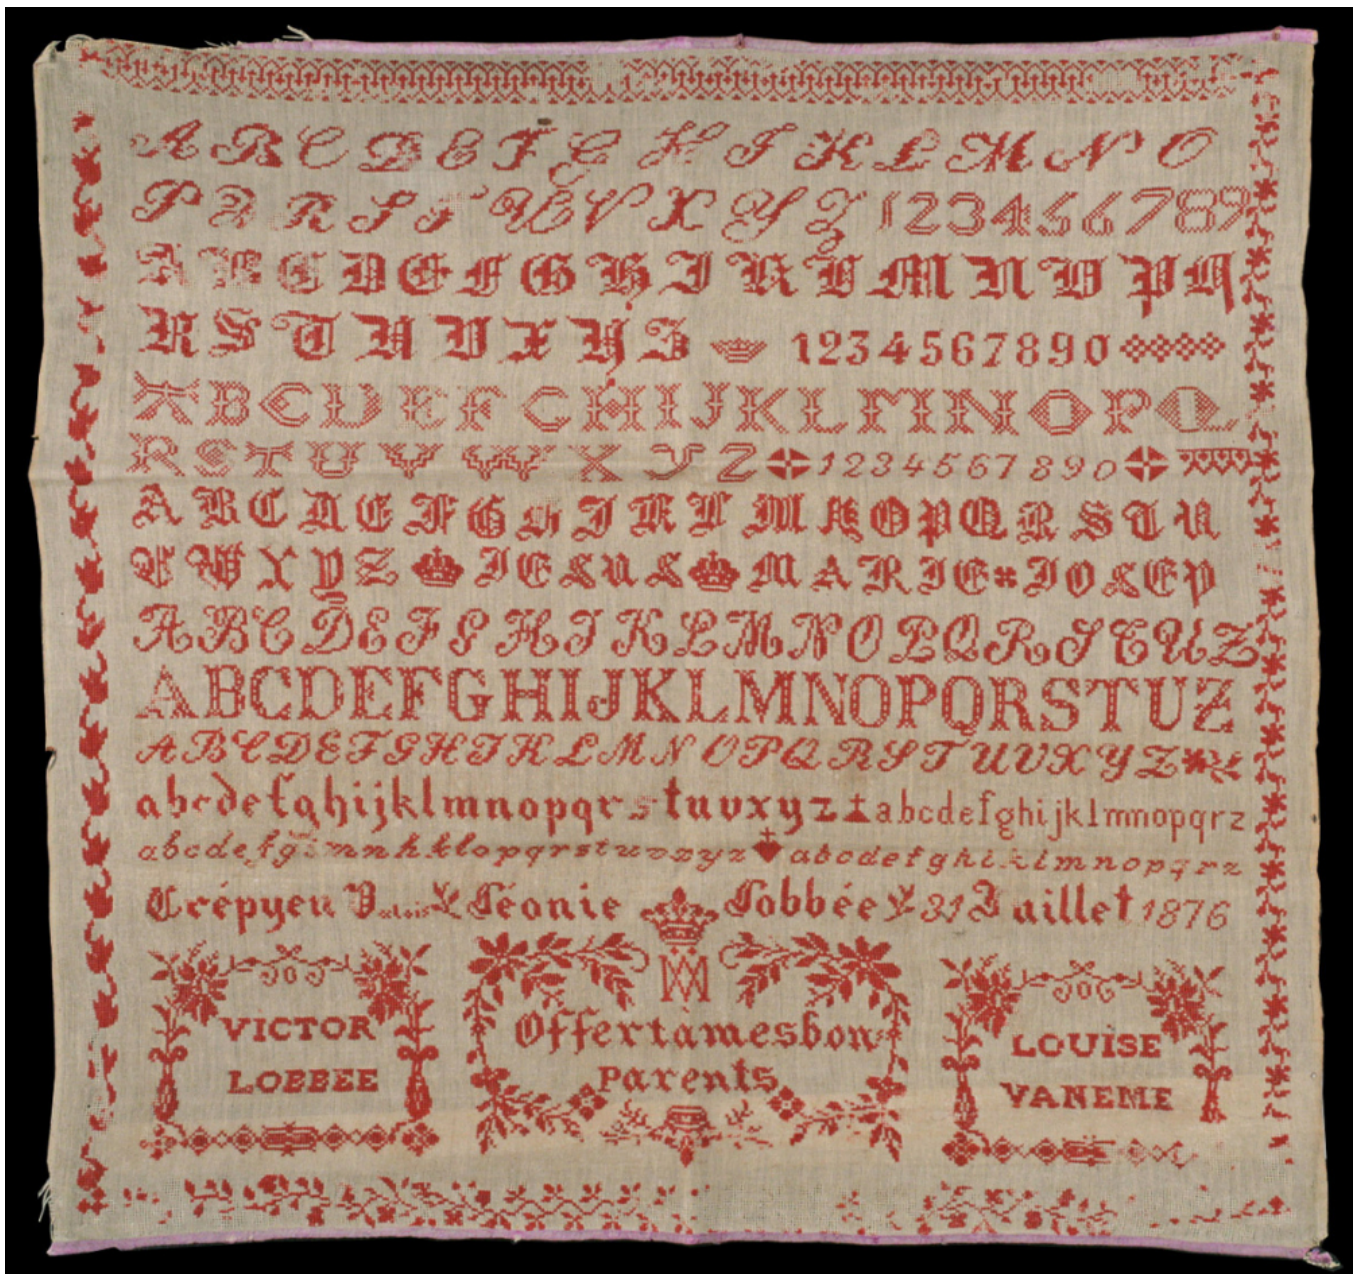 A B C D E F G H I K L M N O
P Q R S T U V X Y Z 1 2 3 4 5 6 7 8 9
A B C D E F G H I K L M N O P Q
R S T U V X Y Z 1 2 3 4 5 6 7 8 9 0
A B C D E F G H I J K L M N O P Q
R S T U V W X Y Z 1 2 3 4 5 6 7 8 9 0
A B C D E F G H I K L M N O P Q R S T U
V W X Y Z JESUS MARIE JOSEP
A B C D E F G H I K L M N O P Q R S T U Z
A B C D E F G H I J K L M N O P Q R S T U Z
A B C D E F G H I K L M N O P Q R S T U V X Y Z
a b c d e f g h i j k l m n o p q r s t u v x y z a b c d e f g h i j k l m n o p q r z
a b c d e f g i m n h k l o p q r s t u v x y z a b c d e f g h i k l m n o p q r z
Crépyen Léonie Lobbée 31 Juillet 1876
VICTOR
LOBBEE
Offertamesbon
parents
LOUISE
VANEME